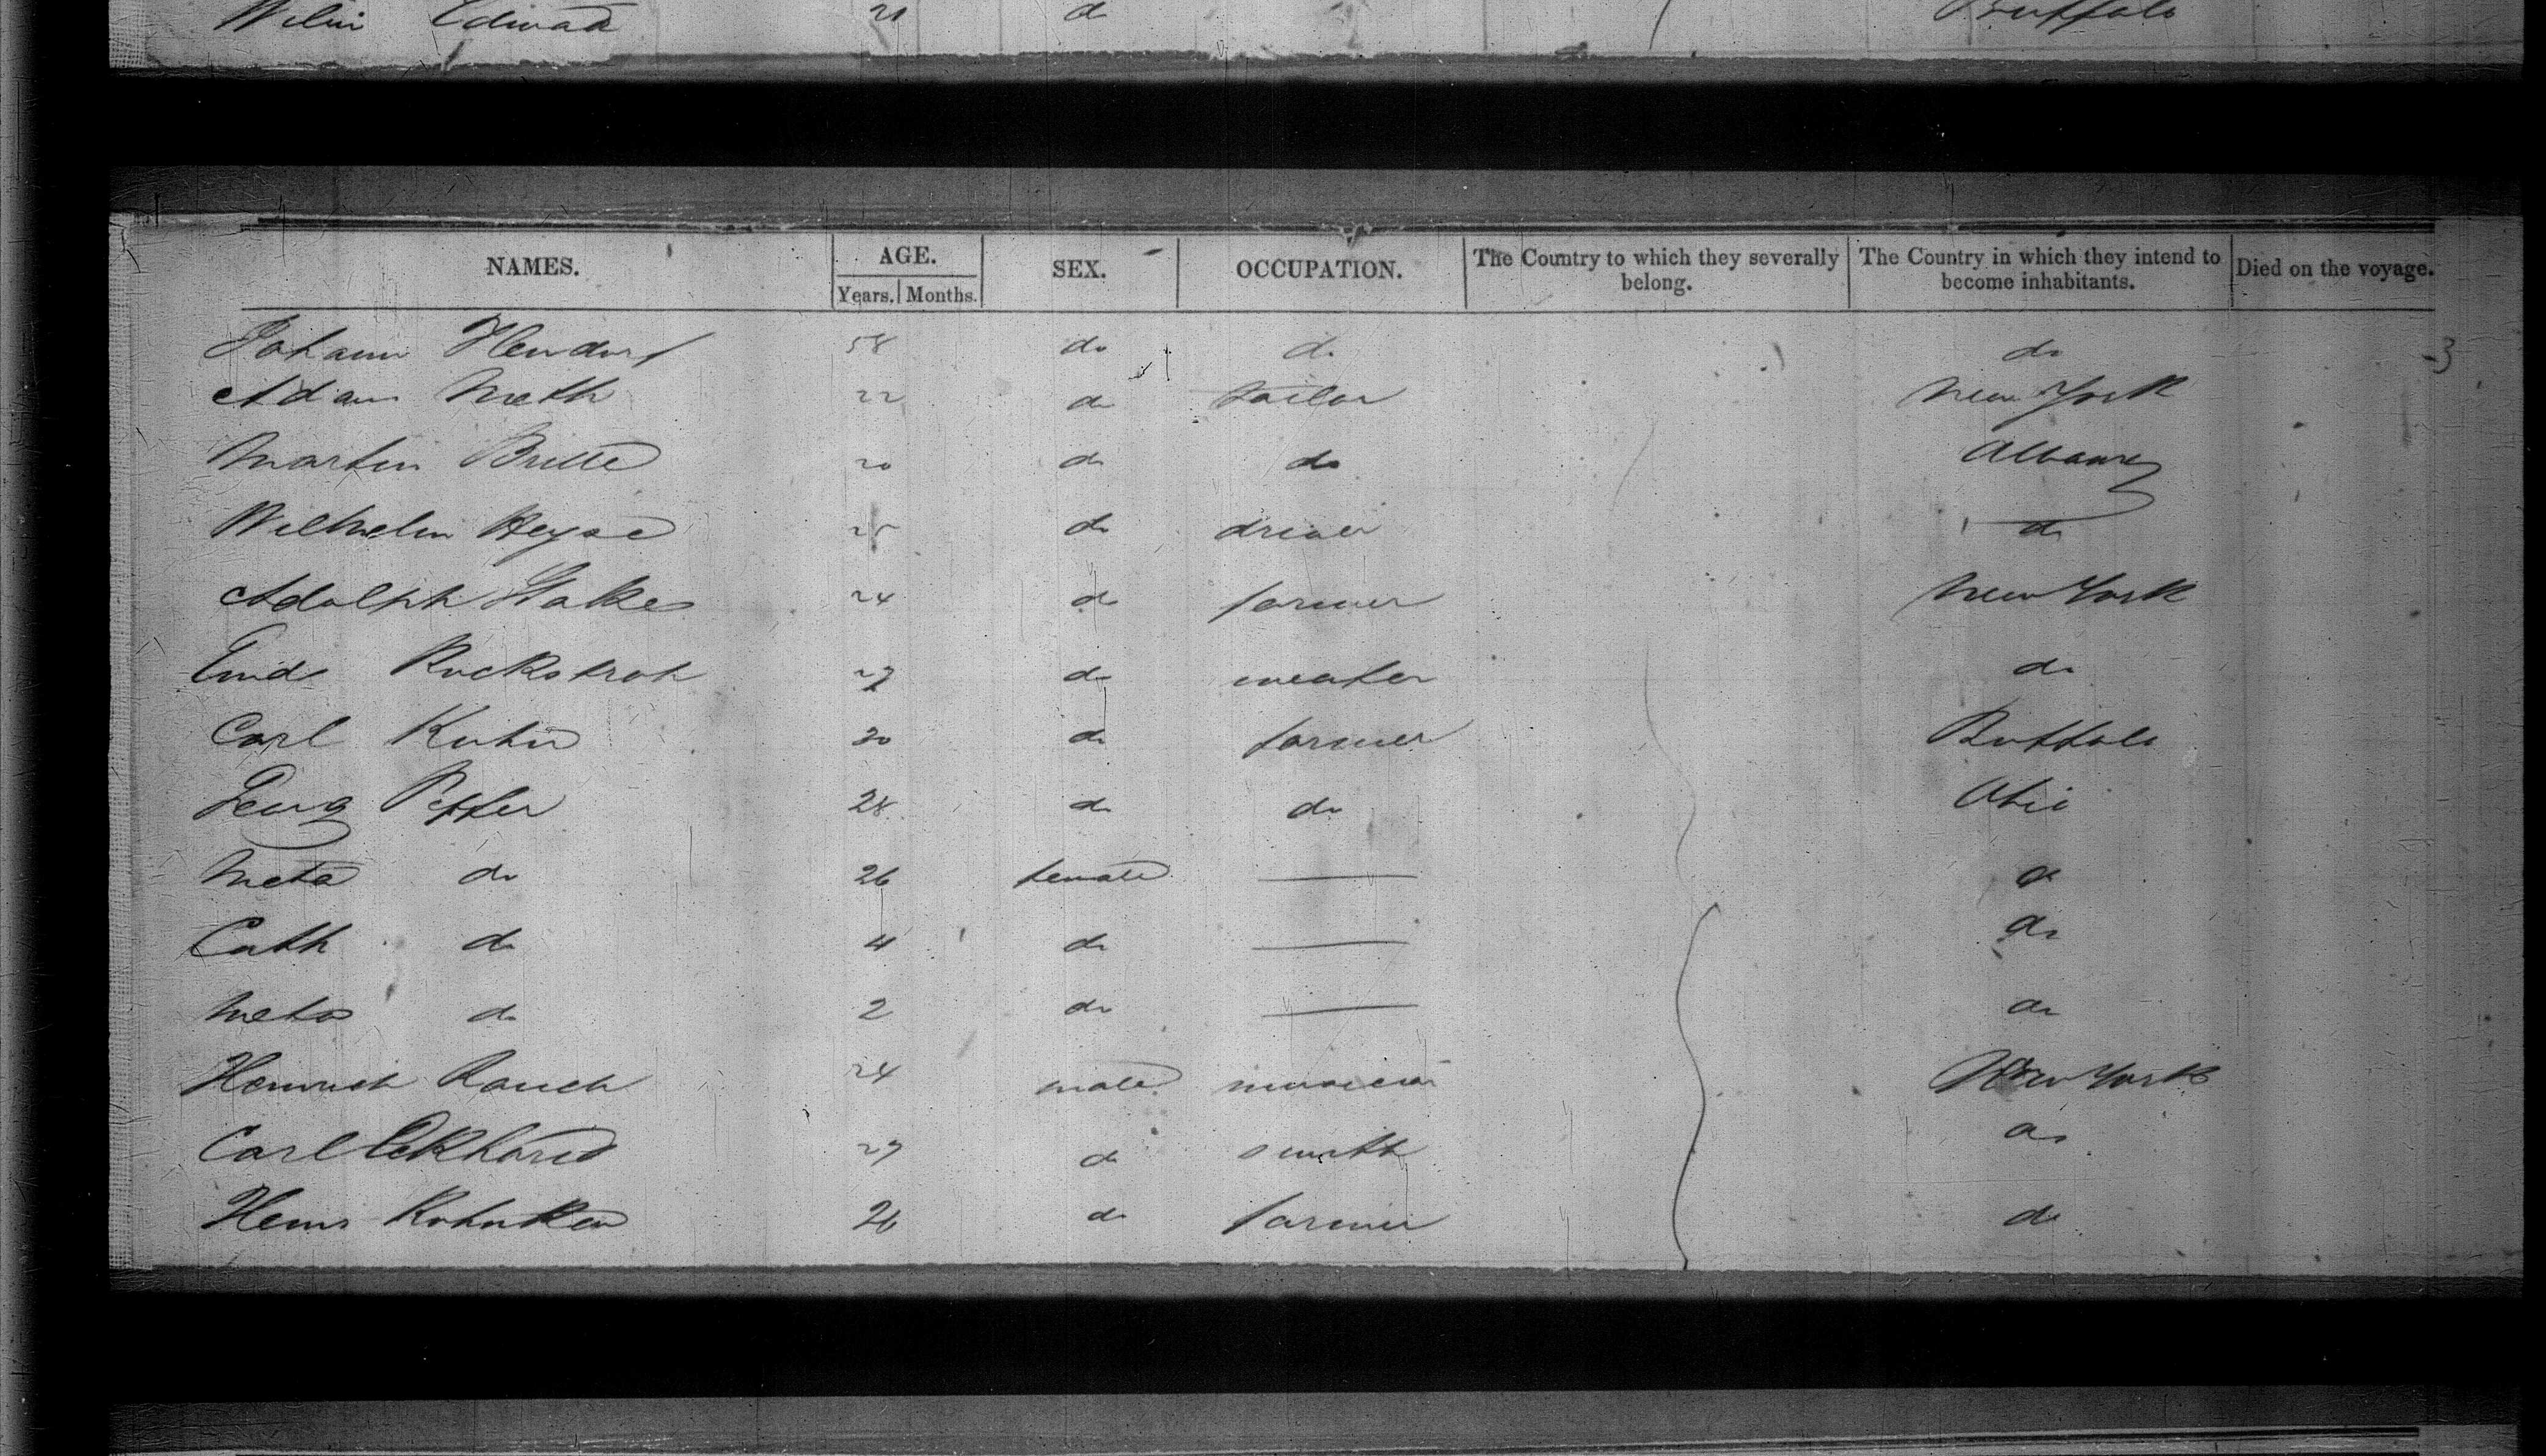 Edward 21 do Buffalo
NAMES. AGE. SEX. OCCUPATION. The Country to which they severally belong. The Country in which they intend to become inhabitants. Died on the voyage.
Years. Months.
Johann 58 do do do 3
Adam Meth 22 do tailor New York
Martin Brille 20 do do Albany
Wilhelm Heyse 25 do driver do
Adolph 24 do farmer New York
Ruckstroh 27 do do
Carl Kuhn 20 do farmer Buffalo
Georg Peffer 28 do do Ohio
Meta do 26 female — do
Cath do 4 do — do
Meta do 2 do — do
Heinrich Rauch 24 male musician New York
Carl Eckhard 27 do smith do
Kohnken 26 do farmer do